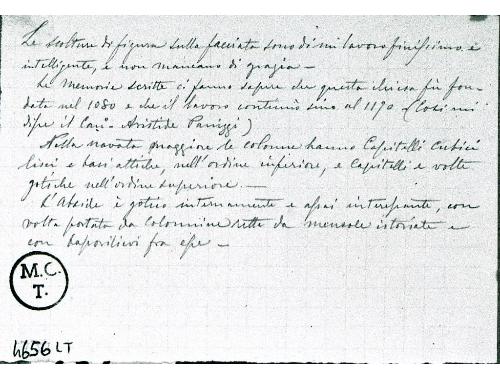 Le scolture di figura sulla facciata sono di un lavoro finissimo, e
intelligente, e non mancano di grazia —
Le Memorie scritte ci fanno sapere che questa chiesa fù fon-
data nel 1080 e che il lavoro continuò sino al 1170 — (Così mi
disse il Canº Aristide Panizzi)
Nella navata maggiore le colonne hanno Capitelli Cubici
lisci e basi attiche, nell'ordine inferiore, e Capitelli e volte
gotiche nell'ordine superiore. —
L'Abside è gotico internamente e assai interessante, con
volta portata da Colonnine rette da mensole istoriate e
con bassorilievi fra esse —
M.C.
T.
4656 LT